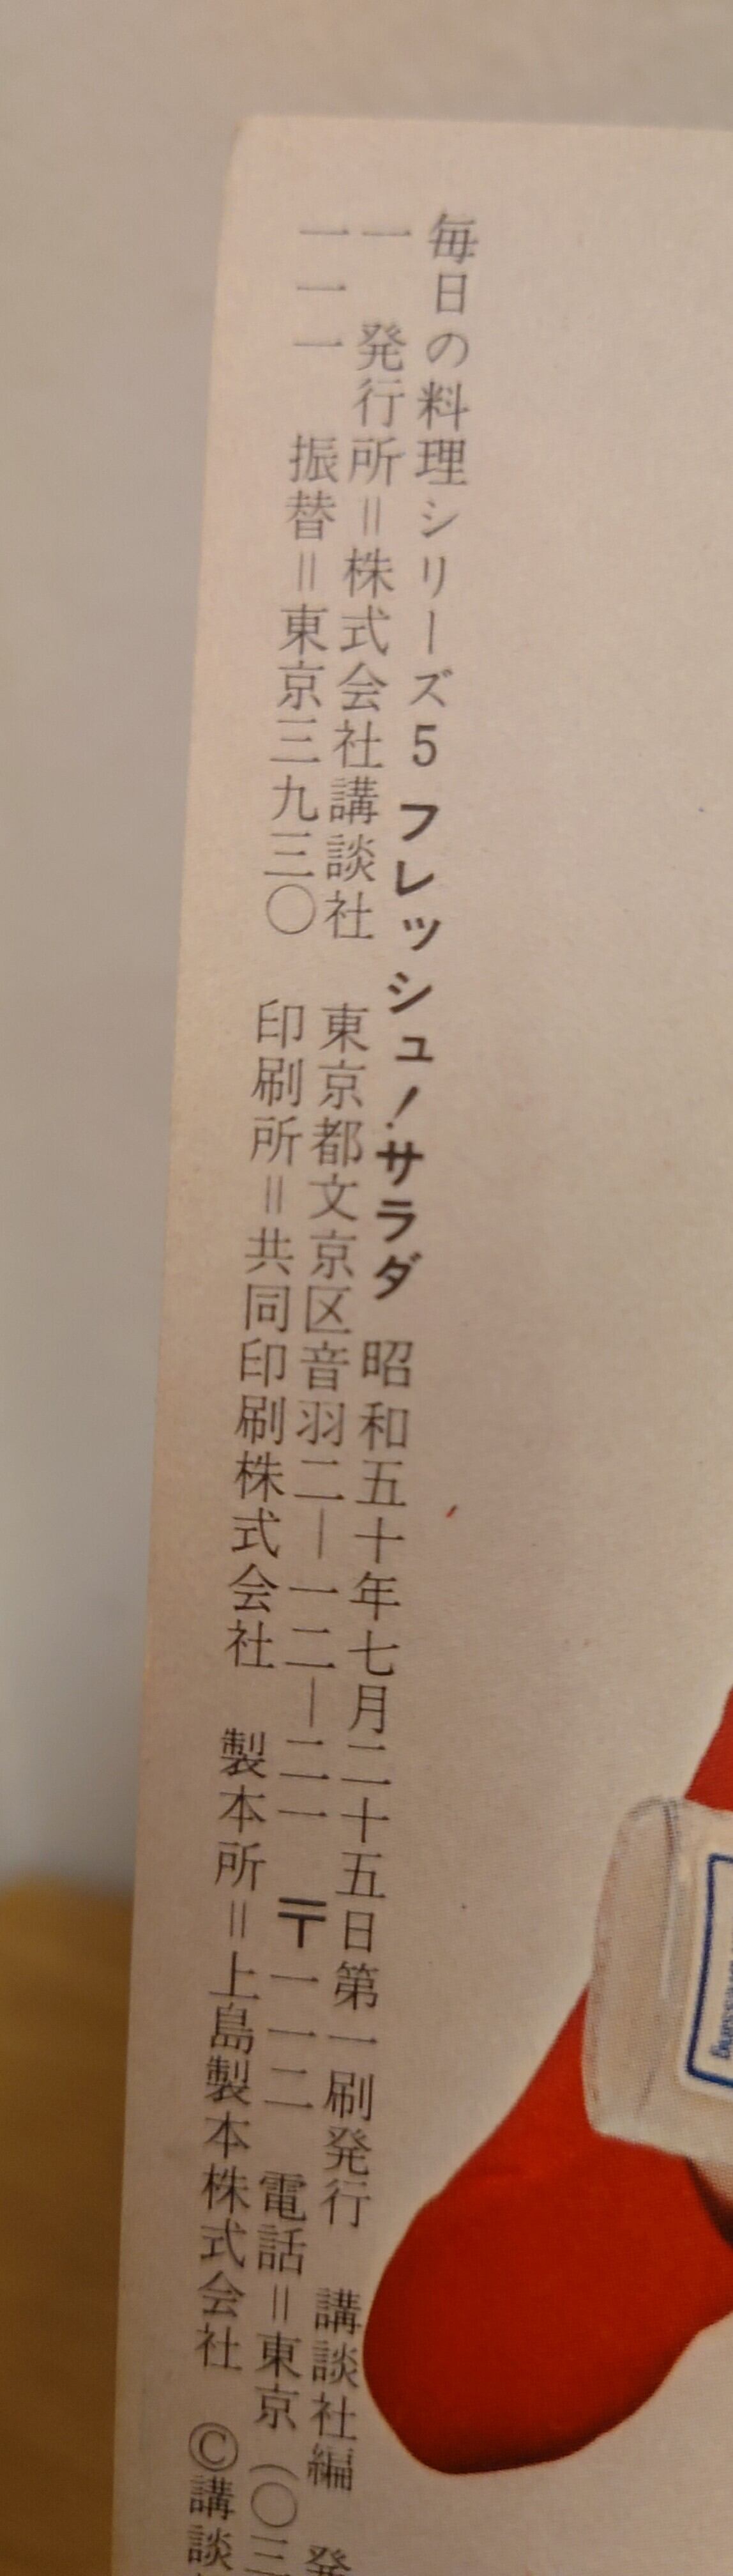 毎日の料理シリーズ5 フレッシュ!サラダ 昭和五十年七月二十五日第一刷発行 講談社編 発
一 発行所=株式会社講談社 東京都文京区音羽二—一二—二一 〒一一二 電話=東京(〇三
一一一 振替=東京三九三〇 印刷所=共同印刷株式会社 製本所=上島製本株式会社 ©講談